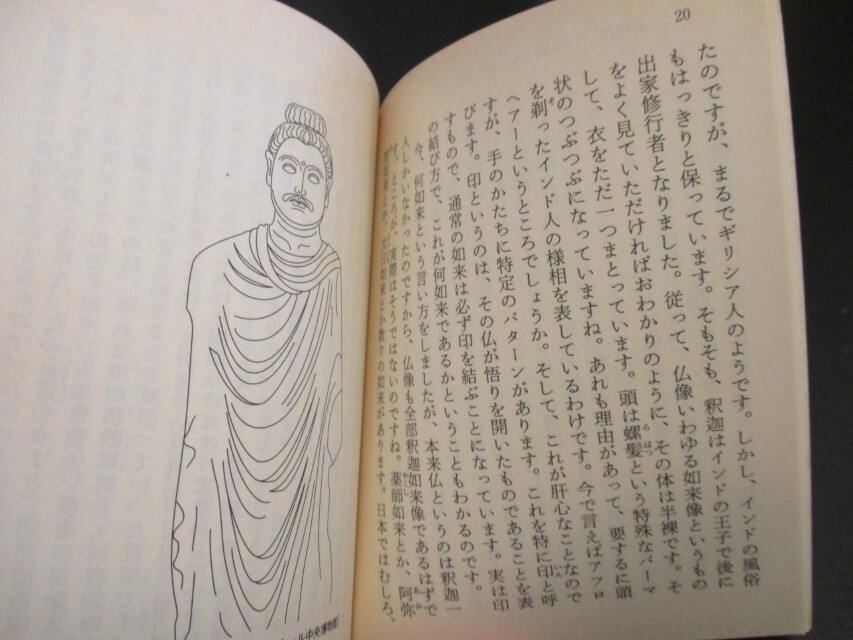 20
たのですが、まるでギリシア人のようです。しかし、インドの風俗
もはっきりと保っています。そもそも、釈迦はインドの王子で後に
出家修行者となりました。従って、仏像いわゆる如来像というもの
をよく見ていただければおわかりのように、その体は半裸です。そ
して、衣をただ一つまとっています。頭は螺髪という特殊なパーマ
状のつぶつぶになっていますね。あれも理由があって、要するに頭
を剃ったインド人の様相を表しているわけです。今で言えばアフロ
ヘアーというところでしょうか。そして、これが肝心なことなので
すが、手のかたちに特定のパターンがあります。これを特に印と呼
びます。印というのは、その仏が悟りを開いたものであることを表
すもので、通常の如来は必ず印を結ぶことになっています。実は印
の結び方で、これが何如来であるかということもわかるのです。
今、何如来という言い方をしましたが、本来仏というのは釈迦一
人しかいなかったのですから、仏像も全部釈迦如来像であるはずで
す。ところが、実際はそうではないのですね。薬師如来とか、阿弥
如来とか、大日如来とか数々の如来があります。日本ではむしろ、
ル中央博物館）